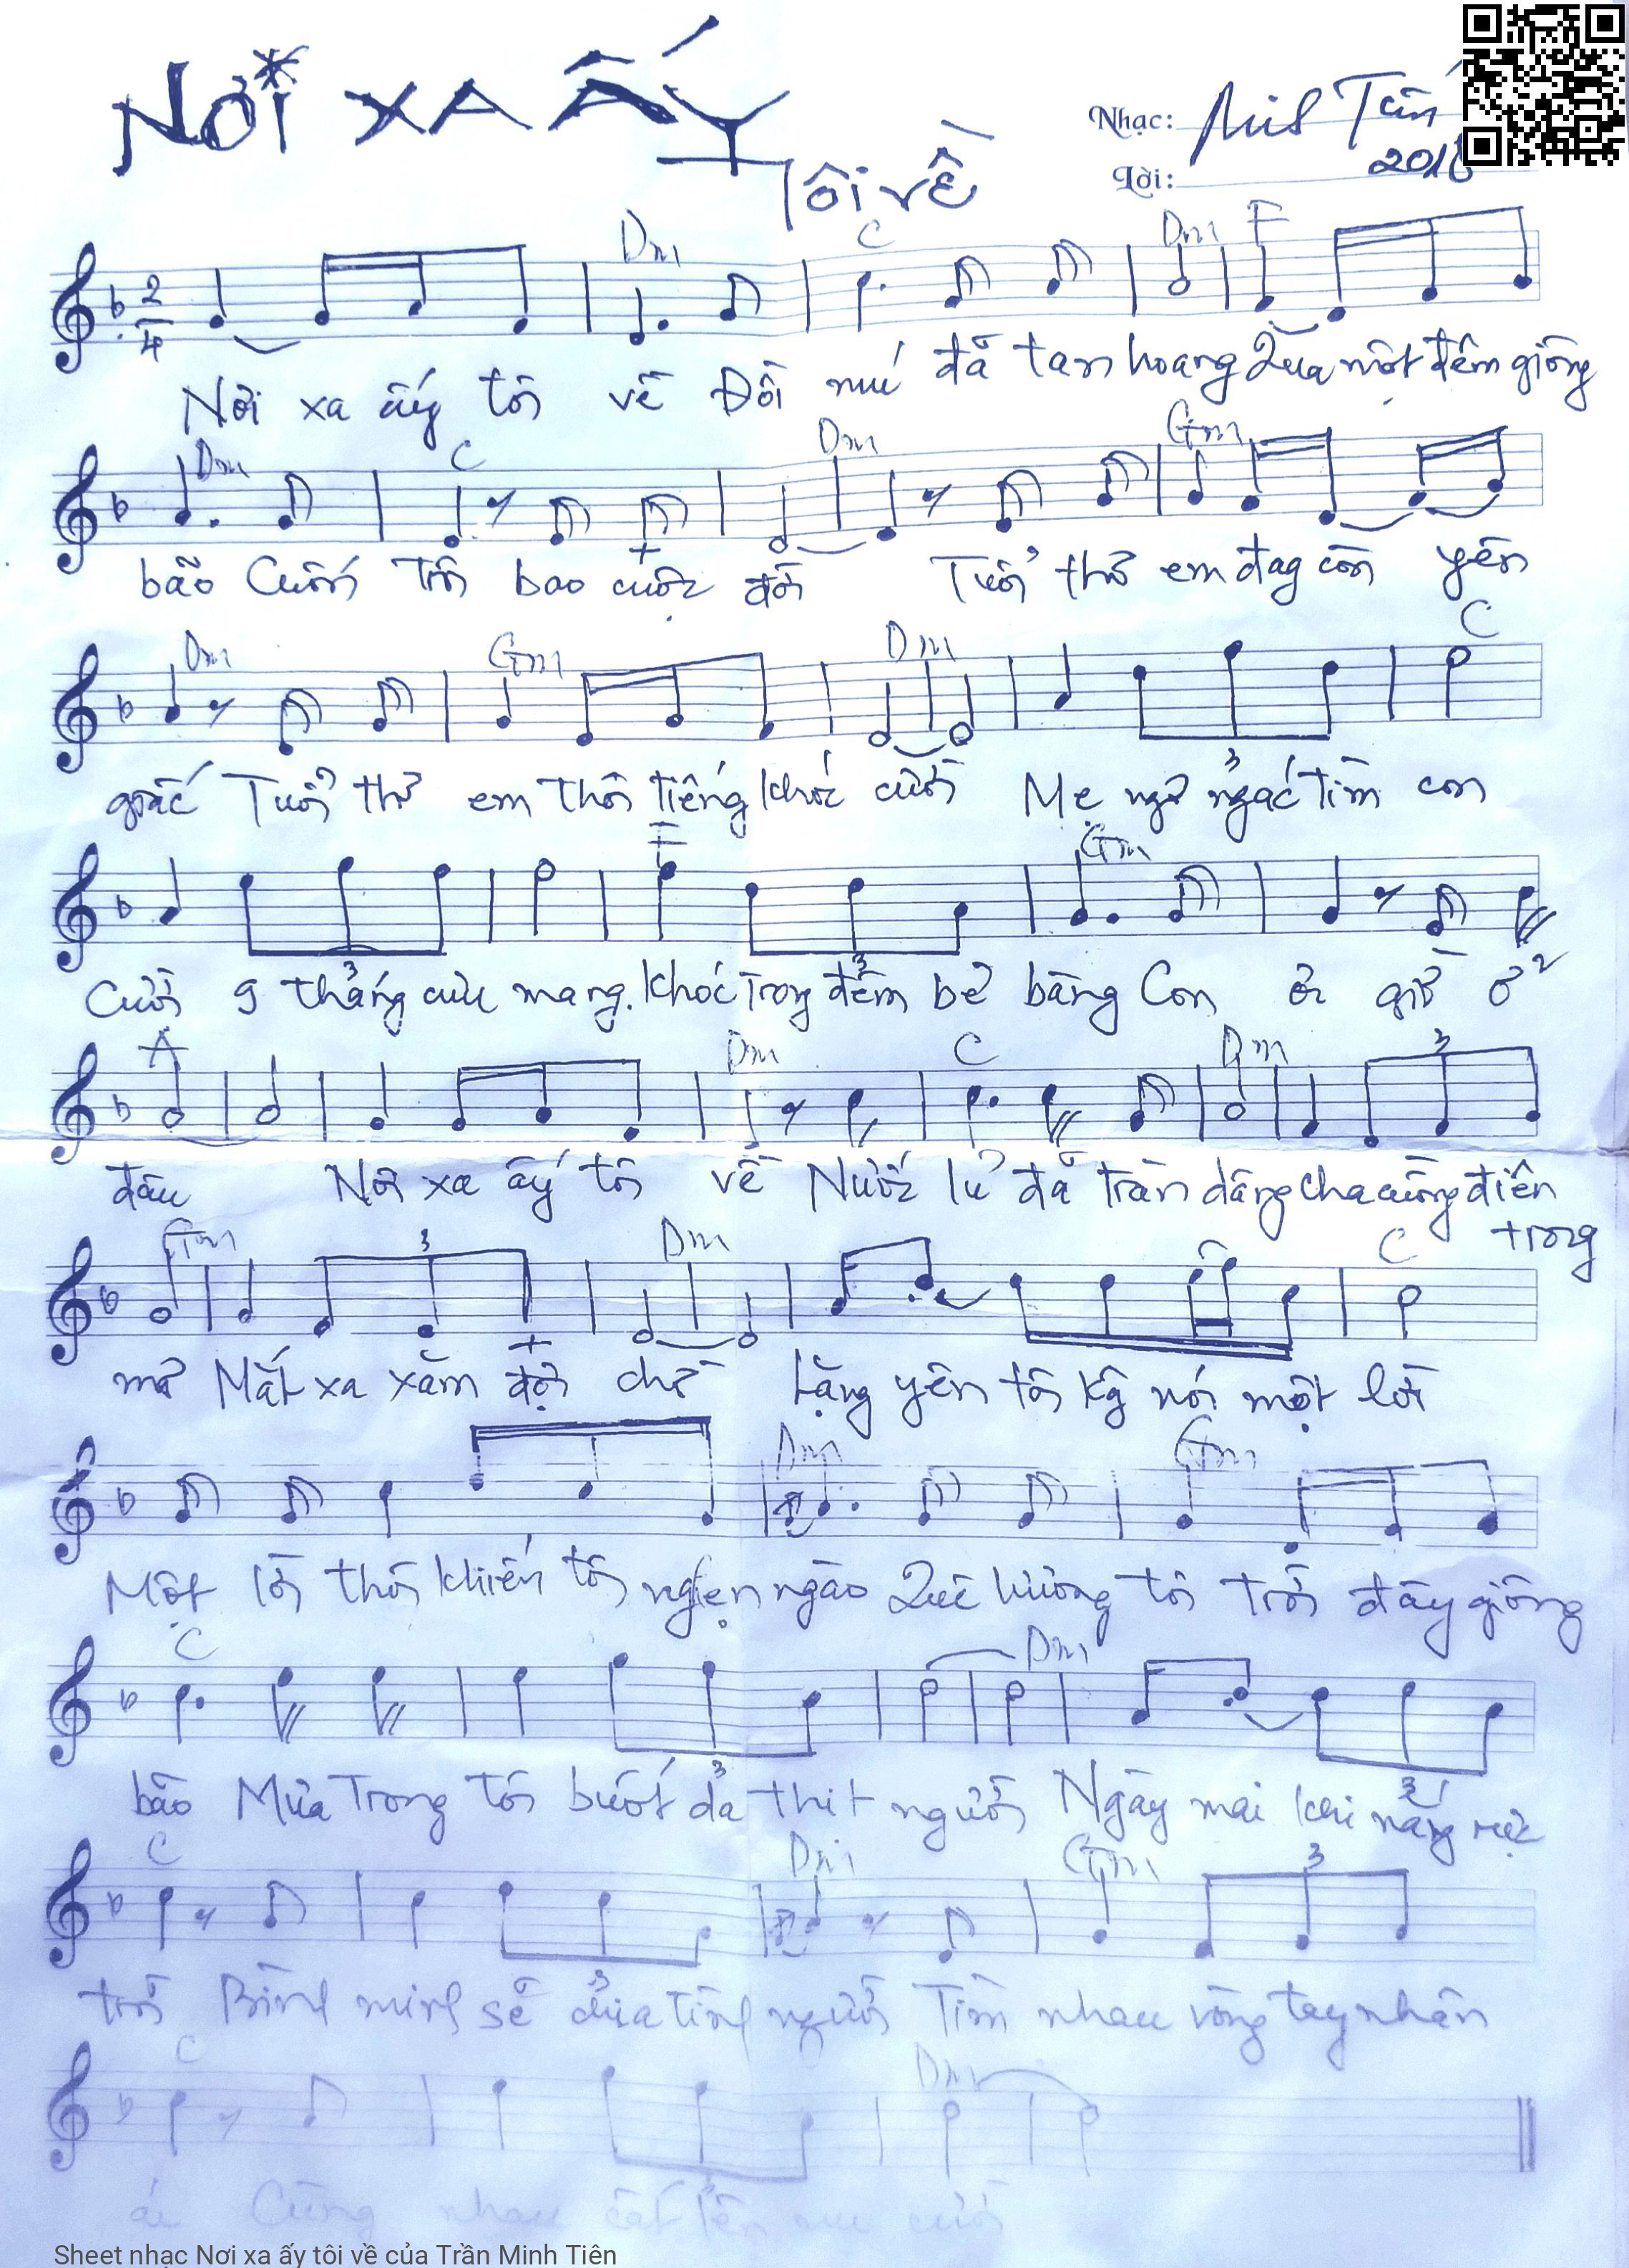 Nơi xa ấy
Tôi về
Nhạc: Minh Tiên
2016
Lời:
Dm C Dm F
2/4
Nơi xa ấy tôi về Đồi núi đã tan hoang Qua một đêm giông
Dm C Dm Gm
bão Cuốn trôi bao cuộc đời Tuổi thơ em đag còn yên
Dm Gm Dm C
giấc Tuổi thơ em thôi tiếng khóc cười Mẹ ngơ ngác tìm con
3
F Gm
Cười 9 tháng cưu mang. Khóc Trong đêm bẽ bàng Con ơi giờ ở
3 3
A Dm C Dm 3
đâu Nơi xa ấy tôi về Nước lũ đã tràn dâng cha cuồng điên
trong
Gm 3 Dm C
mơ Mắt xa xăm đợi chờ Lặng yên tôi kg nói một lời
Dm Gm
Một lời thôi khiến tôi nghẹn ngào Quê hương tôi trời đầy giông
C Dm
bão Mưa Trong tôi buốt da thịt người Ngày mai khi nắng rực
3 3
C Dm Gm 3
trời Bình minh sẽ đưa tình người Tìm nhau vòng tay nhân
3
C Dm
ái Cùng nhau cất lên nụ cười
Sheet nhạc Nơi xa ấy tôi về của Trần Minh Tiên